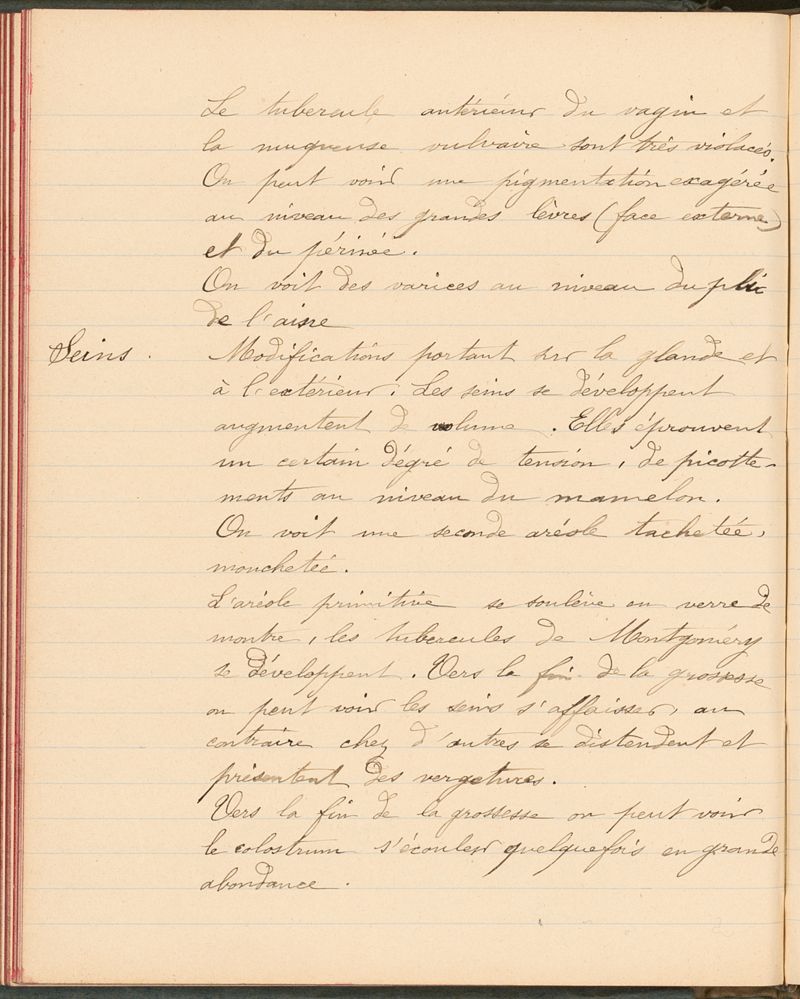 Le tubercule antérieur du vagin et
la muqueuse vulvaire sont très violacés.
On peut voir une pigmentation exagérée
au niveau des grandes lèvres (face externe)
et du périnée.
On voit des varices au niveau du pli
de l'aine
Seins. Modifications portant sur la glande et
à l'extérieur. Les seins se développent
augmentent de volume. Elles éprouvent
un certain dégré de tension, de picotte-
ments au niveau du mamelon.
On voit une seconde aréole tachetée,
mouchetée.
L'aréole primitive se soulève en verre de
montre, les tubercules de Montgoméry
se développent. Vers la fin de la grossesse
on peut voir les seins s'affaisser, au
contraire chez d'autres se distendent et
présentent des vergetures.
Vers la fin de la grossesse on peut voir
le colostrum s'écouler quelquefois en grande
abondance.